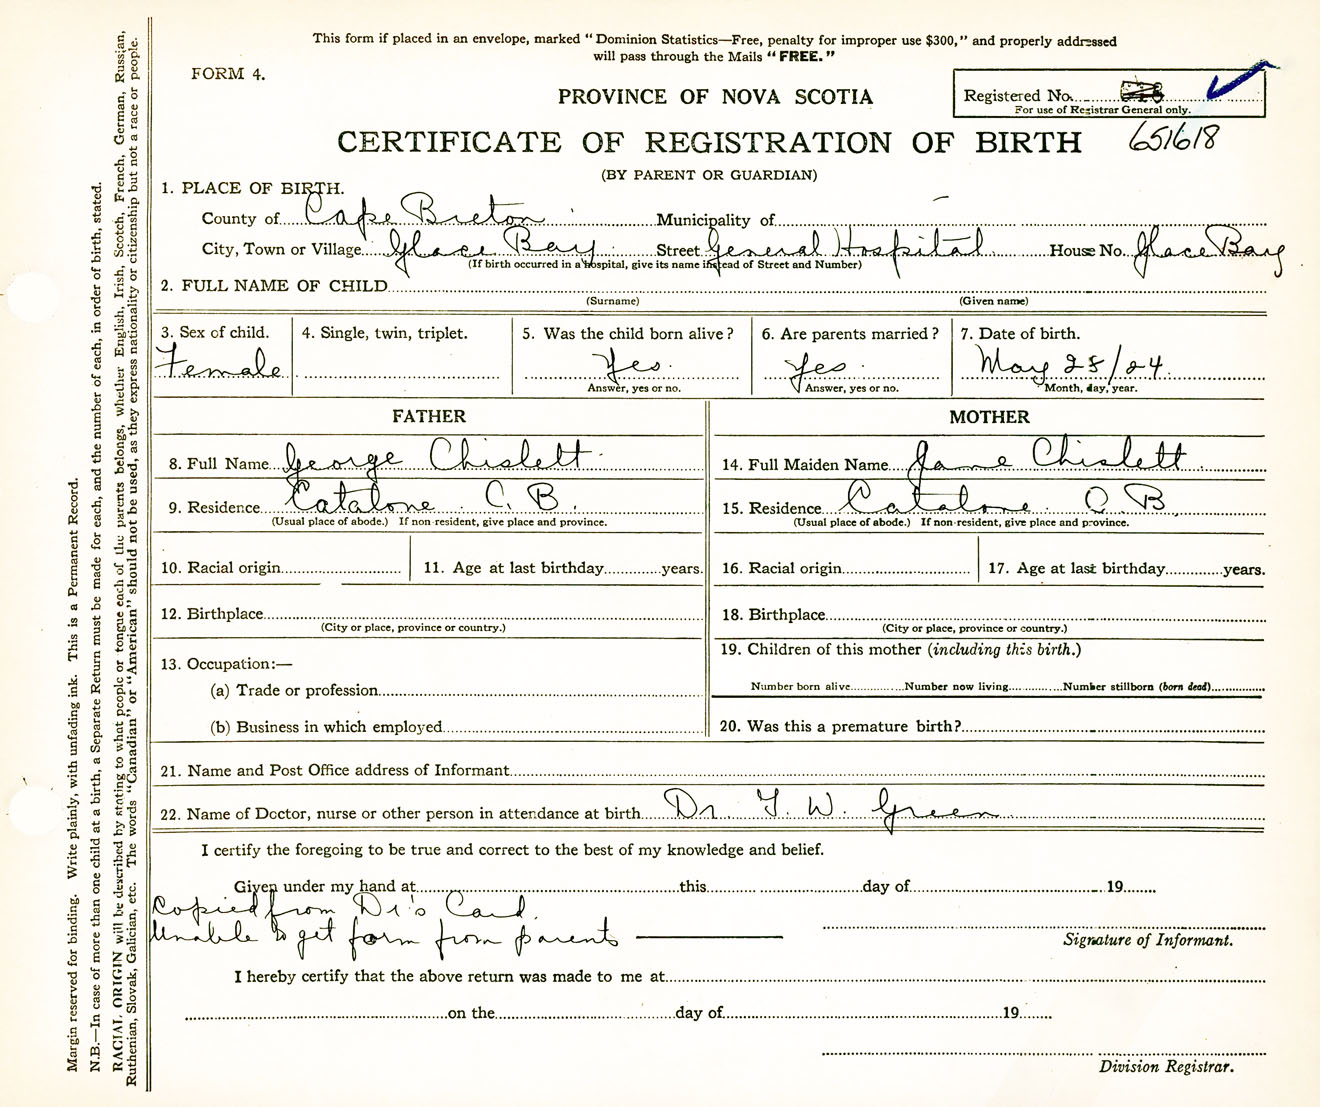 This form if placed in an envelope, marked "Dominion Statistics—Free, penalty for improper use $300," and properly addressed
will pass through the Mails "FREE."
FORM 4.
Registered No.
For use of Registrar General only.
PROVINCE OF NOVA SCOTIA
CERTIFICATE OF REGISTRATION OF BIRTH 651618
(BY PARENT OR GUARDIAN)
1. PLACE OF BIRTH.
County of Cape Breton Municipality of —
City, Town or Village Glace Bay Street General Hospital House No. Glace Bay
(If birth occurred in a hospital, give its name instead of Street and Number)
2. FULL NAME OF CHILD
(Surname) (Given name)
3. Sex of child. 4. Single, twin, triplet. 5. Was the child born alive? 6. Are parents married? 7. Date of birth.
Female Yes Yes May 28/24
Answer, yes or no. Answer, yes or no. Month, day, year.
FATHER MOTHER
8. Full Name George Chislett 14. Full Maiden Name Jane Chislett
9. Residence Catalone C. B. 15. Residence Catalone C B
(Usual place of abode.) If non-resident, give place and province. (Usual place of abode.) If non-resident, give place and province.
10. Racial origin 11. Age at last birthday years. 16. Racial origin 17. Age at last birthday years.
12. Birthplace 18. Birthplace
(City or place, province or country.) (City or place, province or country.)
13. Occupation:— 19. Children of this mother (including this birth.)
(a) Trade or profession Number born alive Number now living Number stillborn (born dead)
(b) Business in which employed 20. Was this a premature birth?
21. Name and Post Office address of Informant
22. Name of Doctor, nurse or other person in attendance at birth Dr. T. W. Green
I certify the foregoing to be true and correct to the best of my knowledge and belief.
Given under my hand at this day of 19
Copied from Dr's Card.
Unable to get form from parents
Signature of Informant.
I hereby certify that the above return was made to me at
on the day of 19
Division Registrar.
Margin reserved for binding. Write plainly, with unfading ink. This is a Permanent Record.
N.B.—In case of more than one child at a birth, a Separate Return must be made for each, and the number of each, in order of birth, stated.
RACIAL ORIGIN will be described by stating to what people or tongue each of the parents belongs, whether English, Irish, Scotch, French, German, Russian,
Ruthenian, Slovak, Galician, etc. The words "Canadian" or "American" should not be used, as they express nationality or citizenship but not a race or people.